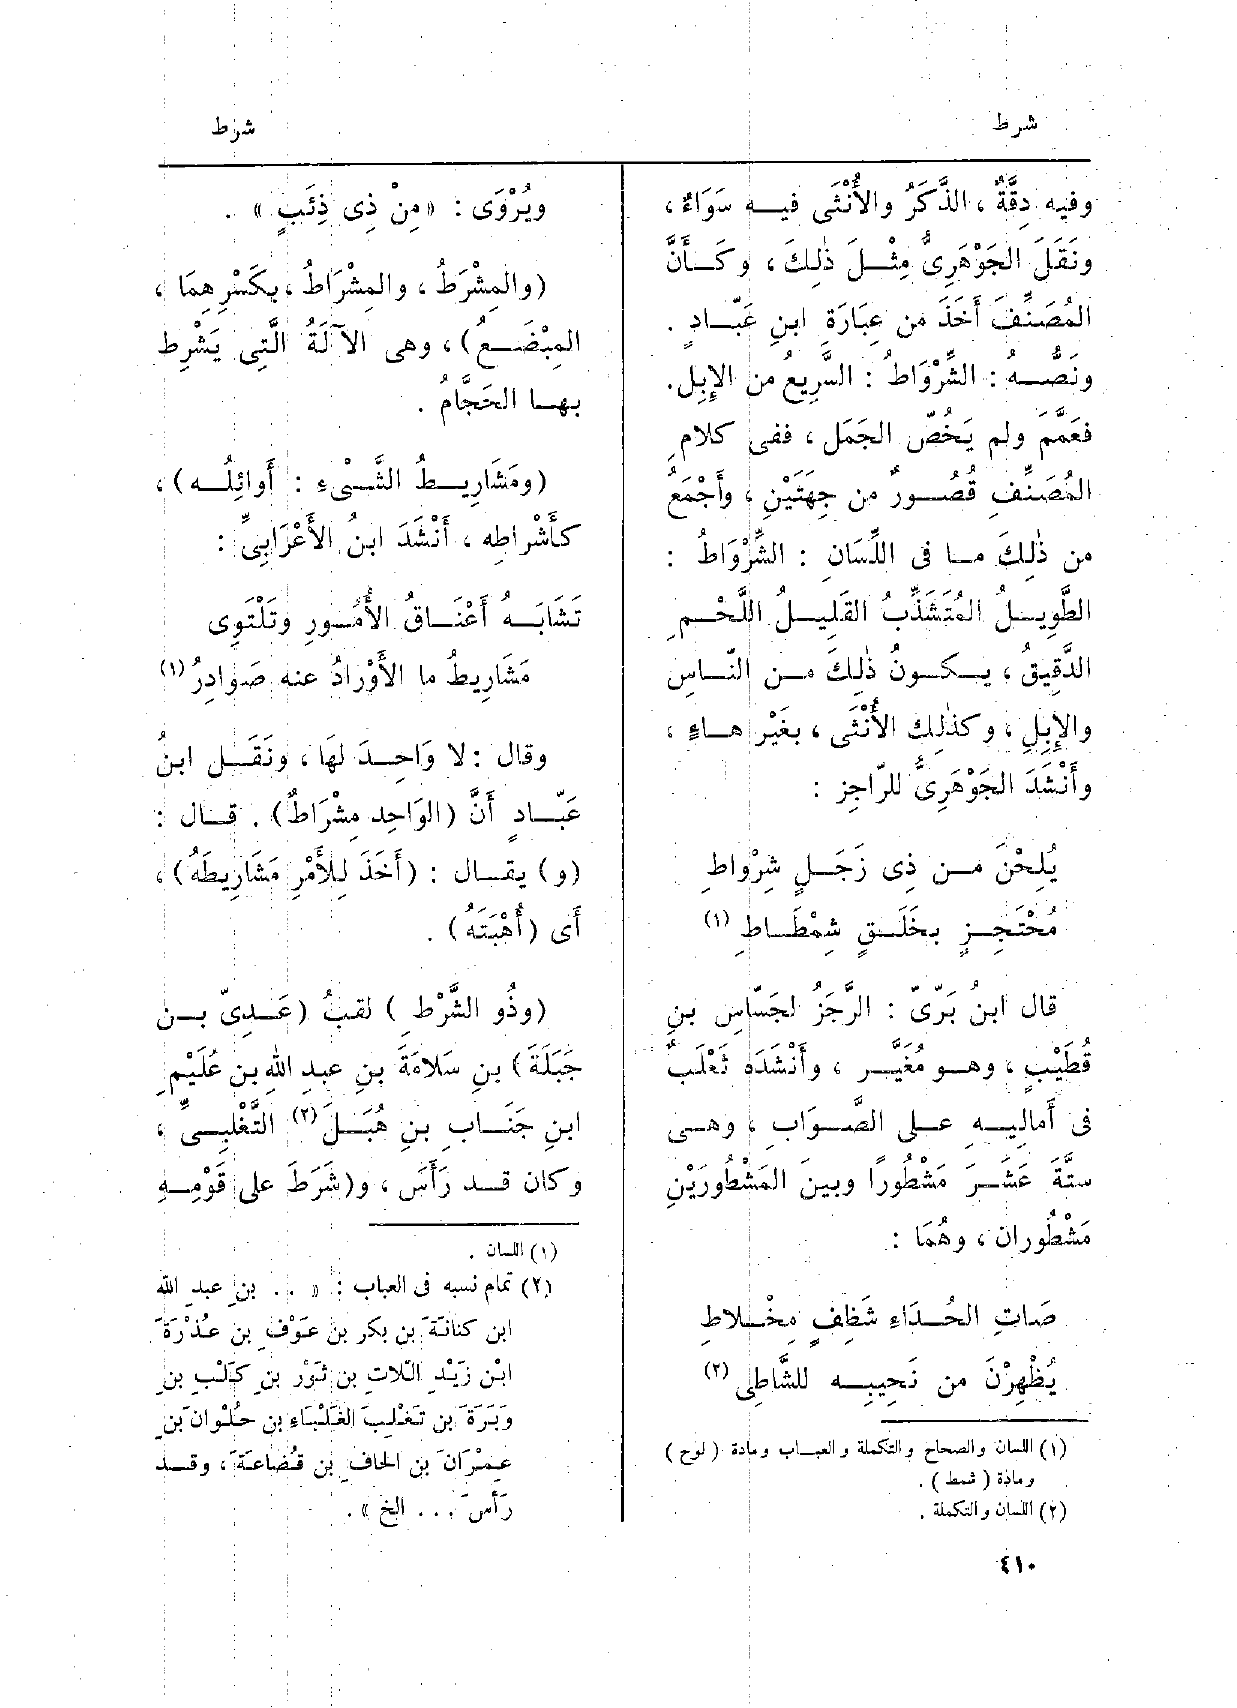 شرط
شرط
وفيه دِقَّةٌ، الذَّكَرُ والأُنْثَى فيه سَوَاءٌ،
ونَقَلَ الجَوْهَرِىُّ مِثْلَ ذٰلِكَ، وكَأَنَّ
المُصَنِّفَ أَخَذَ من عِبَارَةِ ابنِ عَبّادٍ.
ونَصُّه: الشِّرْوَاطُ: السَّرِيعُ من الإِبِل.
فعَمَّم ولم يَخُصّ الجَمَل، ففى كلامِ
المُصَنِّفِ قُصُورٌ من جِهَتَيْنِ، وأَجْمَعُ
من ذٰلِكَ ما فى اللِّسَانِ: الشِّرْوَاطُ:
الطَّوِيلُ المُتَشَذِّبُ القَلِيلُ اللَّحْمِ
الدَّقِيقُ، يكونُ ذٰلِكَ من النّاسِ
والإِبِلِ، وكذٰلِك الأُنْثَى، بغَيْرِ هاءٍ،
وأَنْشَدَ الجَوْهَرِىُّ للرّاجِز:
يُلِحْنَ من ذِى زَجَلٍ شِرْواطِ
مُحْتَجِزٍ بخَلَقٍ شِمْطَاطِ (١)
قال ابنُ بَرّىّ: الرَّجَزُ لجَسّاسِ بنِ
قُطَيْبٍ، وهو مُغَيَّر، وأَنْشَدَه ثَعْلَبٌ
فى أَمالِيه على الصَّوَاب، وهى
ستَّةَ عَشَرَ مَشْطُورًا وبينَ المَشْطُورَيْنِ
مَشْطُوران، وهُمَا:
صَاتِ الحُدَاءِ شَظِفٍ مِخْلاطِ
يُظْهِرْنَ من نَحِيبِه للشَّاطِى (٢)
(١) اللسان والصحاح والتكملة والعباب ومادة (لوح)
ومادة (شمط).
(٢) اللسان والتكملة.
٤١٠
ويُرْوَى: «مِنْ ذِى ذِئَبٍ».
(والمِشْرَطُ، والمِشْرَاطُ، بكَسْرِهِمَا،
المِبْضَعُ)، وهى الآلَةُ الَّتِى يَشْرِط
بها الحَجَّامُ.
(ومَشَارِيطُ الشَّىْءِ: أَوائِلُه)،
كأَشْراطِه، أَنْشَدَ ابنُ الأَعْرَابِىِّ:
تَشَابَهُ أَعْنَاقُ الأُمُورِ وتَلْتَوِى
مَشَارِيطُ ما الأَوْرَادُ عنه صَوادِرُ (١)
وقال: لا وَاحِدَ لهَا، ونَقَل ابنُ
عَبّادٍ أَنَّ (الوَاحِد مِشْرَاطٌ). قال:
(و) يقال: (أَخَذَ لِلأَمْرِ مَشَارِيطَهُ)،
أَى (أُهْبَتَهُ).
(وذُو الشَّرْطِ) لقبُ (عَدِىّ بن
جَبَلَةَ) بنِ سَلامَةَ بنِ عبدِ اللهِ بن عُلَيْمِ
ابنِ جَنَابِ بنِ هُبَلَ (٢) التَّغْلِبِىِّ،
وكان قد رَأَسَ، و(شَرَطَ على قَوْمِهِ
(١) اللسان.
(٢) تمام نسبه فى العباب: «.. بن عبد الله
ابن كنانَةَ بن بكر بن عَوْف بن عُذْرَةَ
ابْن زَيْدِ اللّاتِ بن ثَوْر بن كَلْب بن
وَبَرَةَ بن تَغْلِبَ الغَلْبَاءِ بن حُلْوان بن
عِمْرَانَ بن الحاف بن قُضاعَةَ، وقد
رَأَسَ ... الخ».